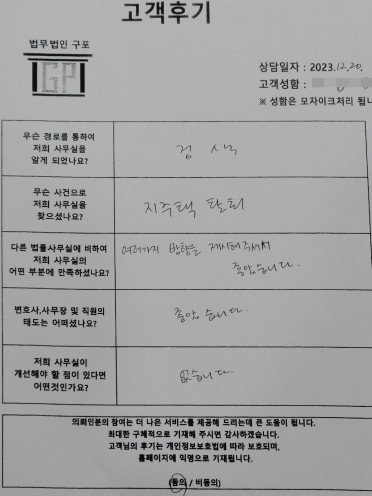 고객후기
법무법인 구포
GP
상담일자 : 2023.12.20.
고객성함 :
※ 성함은 모자이크처리 됩니
무슨 경로를 통하여
저희 사무실을
알게 되었나요?
검색
무슨 사건으로
저희 사무실을
찾으셨나요?
지주택 탈퇴
다른 법률사무실에 비하여
저희 사무실의
어떤 부분에 만족하셨나요?
여러가지 방향을 제시해주셔서
좋았습니다.
변호사,사무장 및 직원의
태도는 어떠셨나요?
좋았습니다.
저희 사무실이
개선해야 할 점이 있다면
어떤것인가요?
없습니다.
의뢰인분의 참여는 더 나은 서비스를 제공해 드리는데 큰 도움이 됩니다.
최대한 구체적으로 기재해 주시면 감사하겠습니다.
고객님의 후기는 개인정보보호법에 따라 보호되며,
홈페이지에 익명으로 기재됩니다.
(동의 / 비동의)